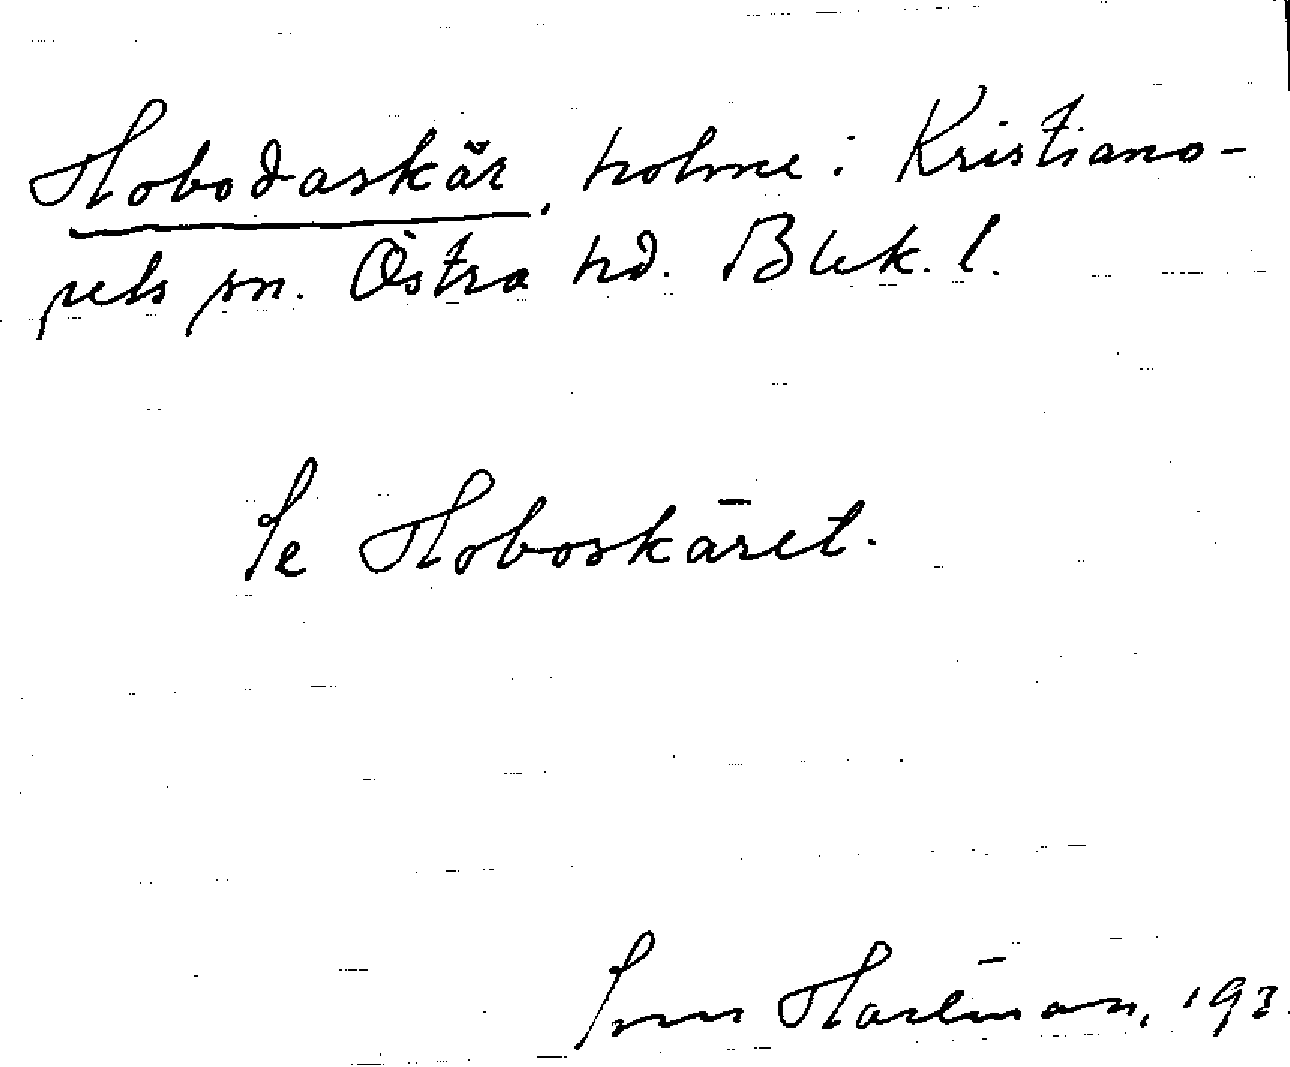 Hobodaskär, holme i Kristiano-
pels sn. Östra hd. Blek. l.
Se Hoboskäret.
Sven Hartman, 193